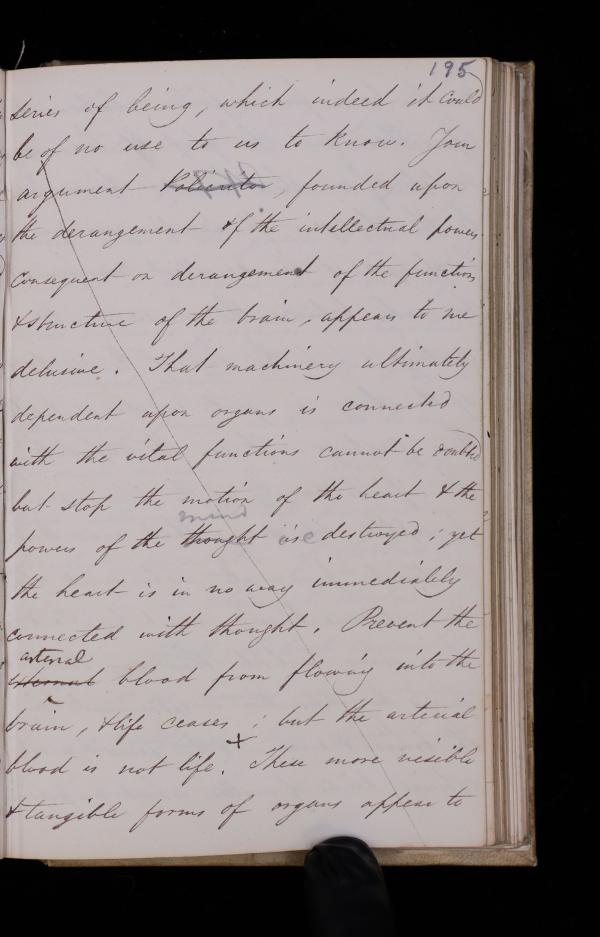 195
series of being, which indeed it could
be of no use to us to know. Your
argument Policritor, founded upon
the derangement of the intellectual powers
consequent on derangement of the functions
& structure of the brain, appears to me
delusive. That machinery ultimately
dependent upon organs is connected
with the vital functions cannot be doubted
but stop the motion of the heart & the
mind
powers of the thought is destroyed; yet
the heart is in no way immediately
connected with thought. Prevent the
arterial
external blood from flowing into the
brain, & life ceases; but the arterial
blood is not life. These more visible
& tangible forms of organs appear to